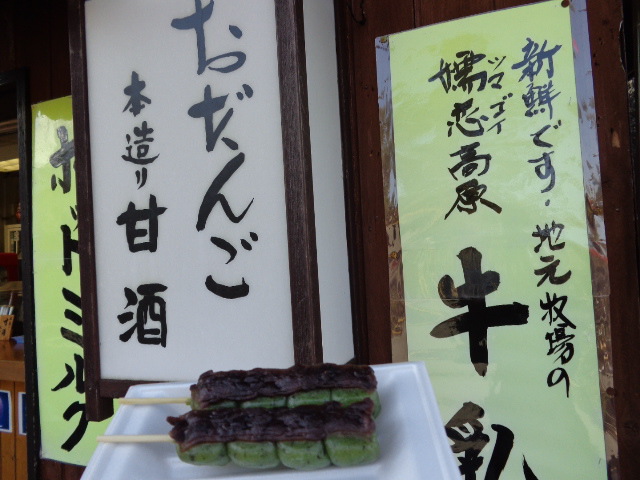 新鮮です・地元牧場の
ツマゴイ
嬬恋高原
牛乳
おだんご
本造り甘酒
ホットミルク